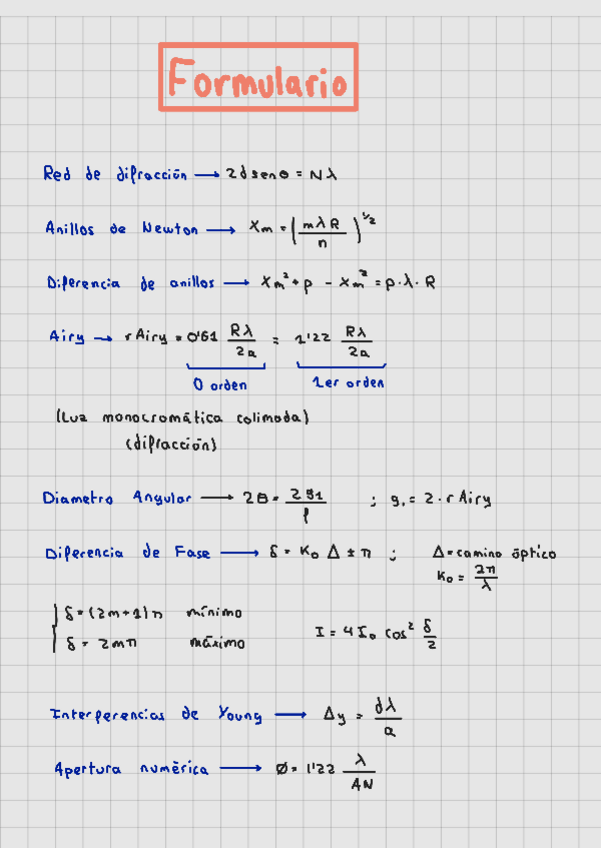 Formulario
Red de difracción → 2d senθ = Nλ
Anillos de Newton → Xm = (mλR/n)^1/2
Diferencia de anillos → Xm²+p - Xm² = p·λ·R
Airy → rAiry = 0'61 Rλ/2a = 1'22 Rλ/2a
0 orden 1er orden
(Luz monocromática colimada)
(difracción)
Diametro Angular → 2θ = 2g1/f ; g1 = 2·rAiry
Diferencia de Fase → δ = K0 Δ ± π ; Δ = camino óptico
K0 = 2π/λ
δ = (2m+1)π mínimo
δ = 2mπ máximo I = 4I0 cos² δ/2
Interferencias de Young → Δy = dλ/a
Apertura numérica → Ø = 1'22 λ/AN